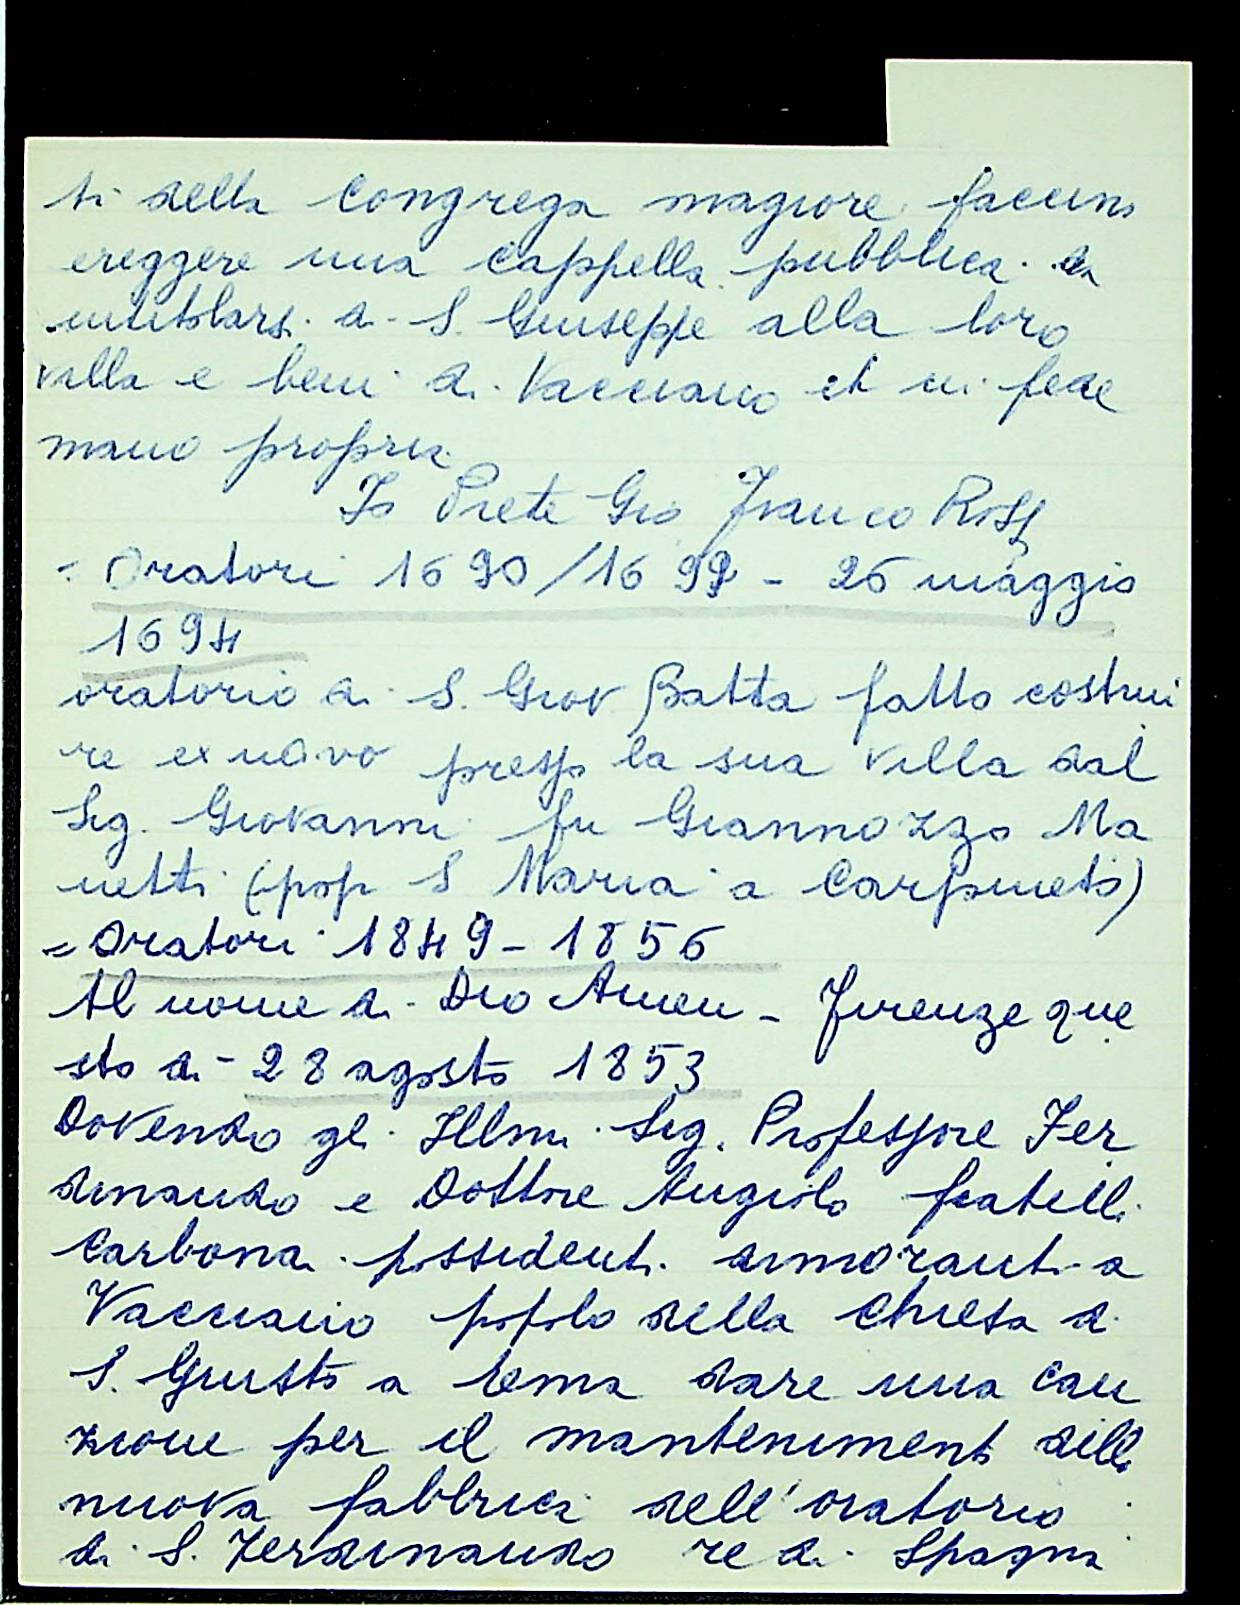 ti della Congrega magiore faccino
ereggere una Cappella pubblica da
intitolarsi a S. Giuseppe alla loro
villa e beni di Vacciano et in fede
mano propria
Io Prete Gio Franco Rossi
= Oratori 1690/1699 - 26 maggio
1694
oratorio di S. Giov Batta fatto costrui
re ex novo presso la sua villa dal
Sig. Giovanni fu Giannozzo Ma
netti (pop S Maria a Carpineto)
= Oratori 1849-1856
Al nome di Dio Amen - Firenze que
sto di - 28 agosto 1853
Dovendo gl'Illmi Sig. Professore Fer
dinando e Dottore Angiolo fratelli
Carbonai possidenti dimoranti a
Vacciano popolo della Chiesa di
S. Giusto a Ema dare una cau
zione per il mantenimento della
nuova fabbrica dell'oratorio
di S. Ferdinando re di Spagna